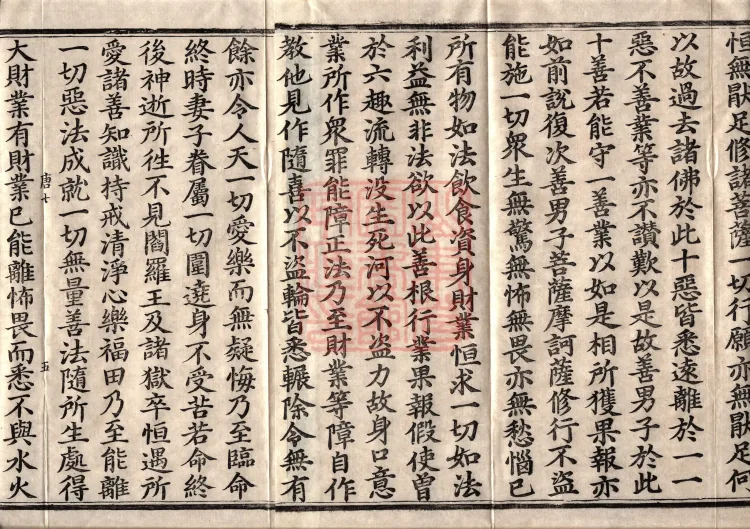 恒無猒足修諸菩薩一切行願亦無猒足何
以故過去諸佛於此十惡皆悉遠離於一一
惡不善業等亦不讃歎以是故善男子於此
十善若能守一善業以如是相所獲果報亦
如前說復次善男子菩薩摩訶薩修行不盜
能施一切衆生無驚無怖無畏亦無愁惱已
所有物如法飲食資身財業恒求一切如法
利益無非法欲以此善根行業果報假使曾
於六趣流轉没生死河以不盜力故身口意
業所作衆罪能障正法乃至財業等障自作
教他見作隨喜以不盜輪皆悉輾除令無有
餘亦令人天一切愛樂而無疑悔乃至臨命
終時妻子眷屬一切圍遶身不受苦若命終
後神逝所徃不見閻羅王及諸獄卒恒遇所
愛諸善知識持戒清淨心樂福田乃至能離
唐七
五
一切惡法成就一切無量善法隨所生處得
大財業有財業已能離怖畏而悉不與水火